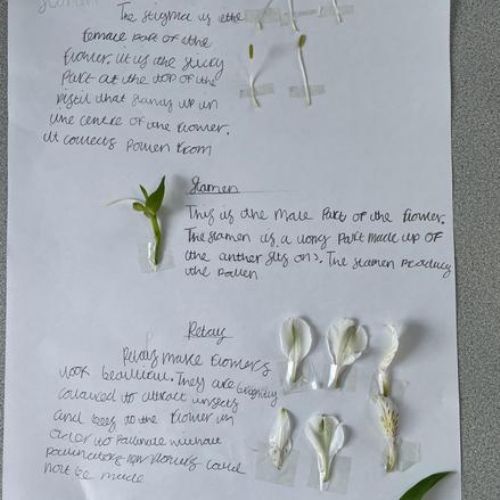 The stigma is the
female part of the
flower. it is the sticky
part at the top of the
pistil that stands up in
the centre of the flower.
it collects pollen from
Stamen
This is the male part of the flower.
The stamen is a long part made up of
the anther (its on). The stamen produce
the pollen
Petals
Petals make flowers
look beautiful. They are brightly
coloured to attract insects
and bees to the flower in
order to pollinate without
pollinators new flowers could
not be made